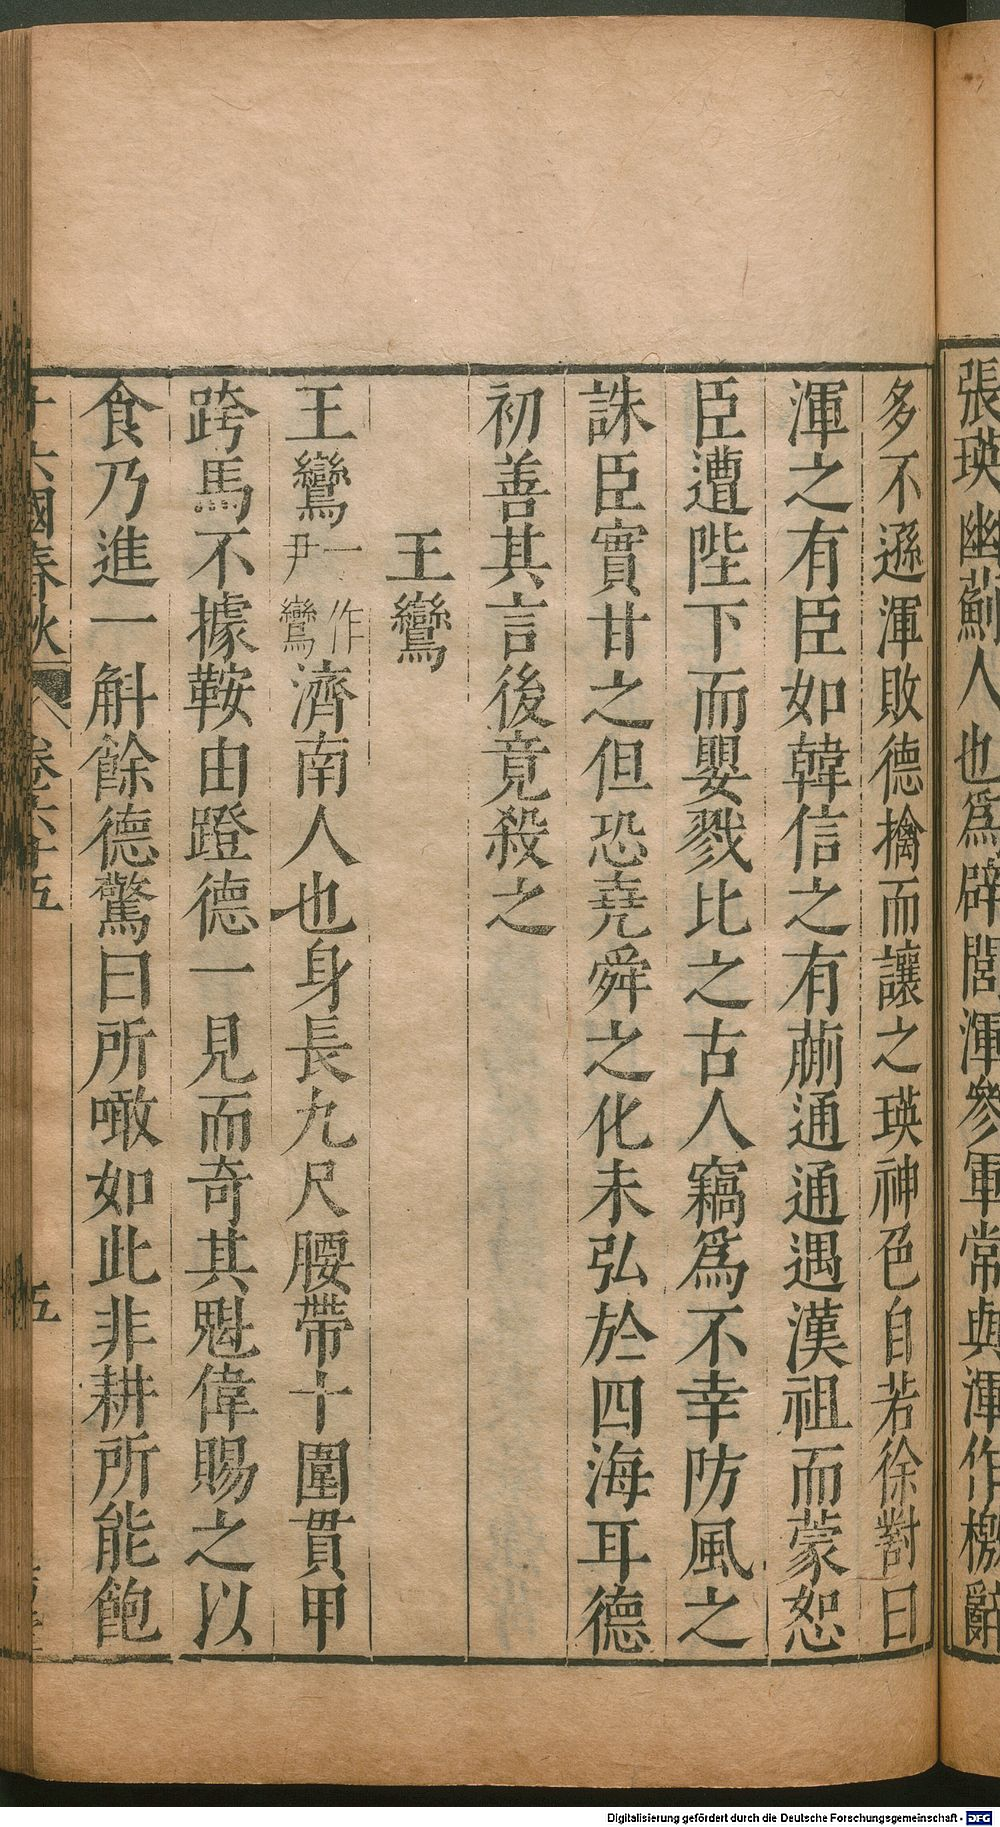 張瑛幽薊人也爲辟閭渾參軍常與渾作檄辭
多不遜渾敗德擒而讓之瑛神色自若徐對曰
渾之有臣如韓信之有蒯通通遇漢祖而蒙恕
臣遭陛下而嬰戮比之古人竊爲不幸防風之
誅臣實甘之但恐堯舜之化未弘於四海耳德
初善其言後竟殺之
王鸞
王鸞一作尹鸞濟南人也身長九尺腰帶十圍貫甲
跨馬不據鞍由蹬德一見而奇其魁偉賜之以
食乃進一斛餘德驚曰所噉如此非耕所能飽
十六國春秋 卷六十五 五
Digitalisierung gefördert durch die Deutsche Forschungsgemeinschaft - DFG